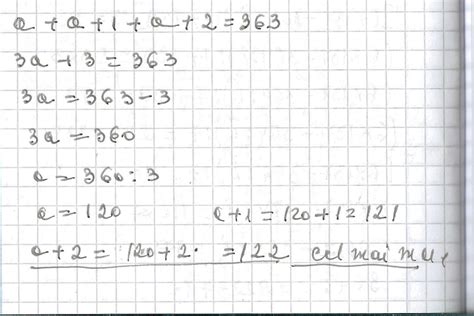 a + a + 1 + a + 2 = 363
3a + 3 = 363
3a = 363 - 3
3a = 360
a = 360 : 3
a = 120 a + 1 = 120 + 1 = 121
a + 2 = 120 + 2. = 122 cel mai